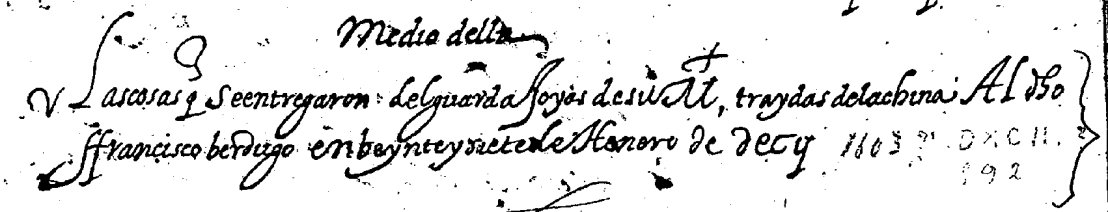 Medio della
Las cosas q se entregaron del guarda Joyas de su M, traydas de la china Al dho
ffrancisco berdugo en beynte y siete de Henero de